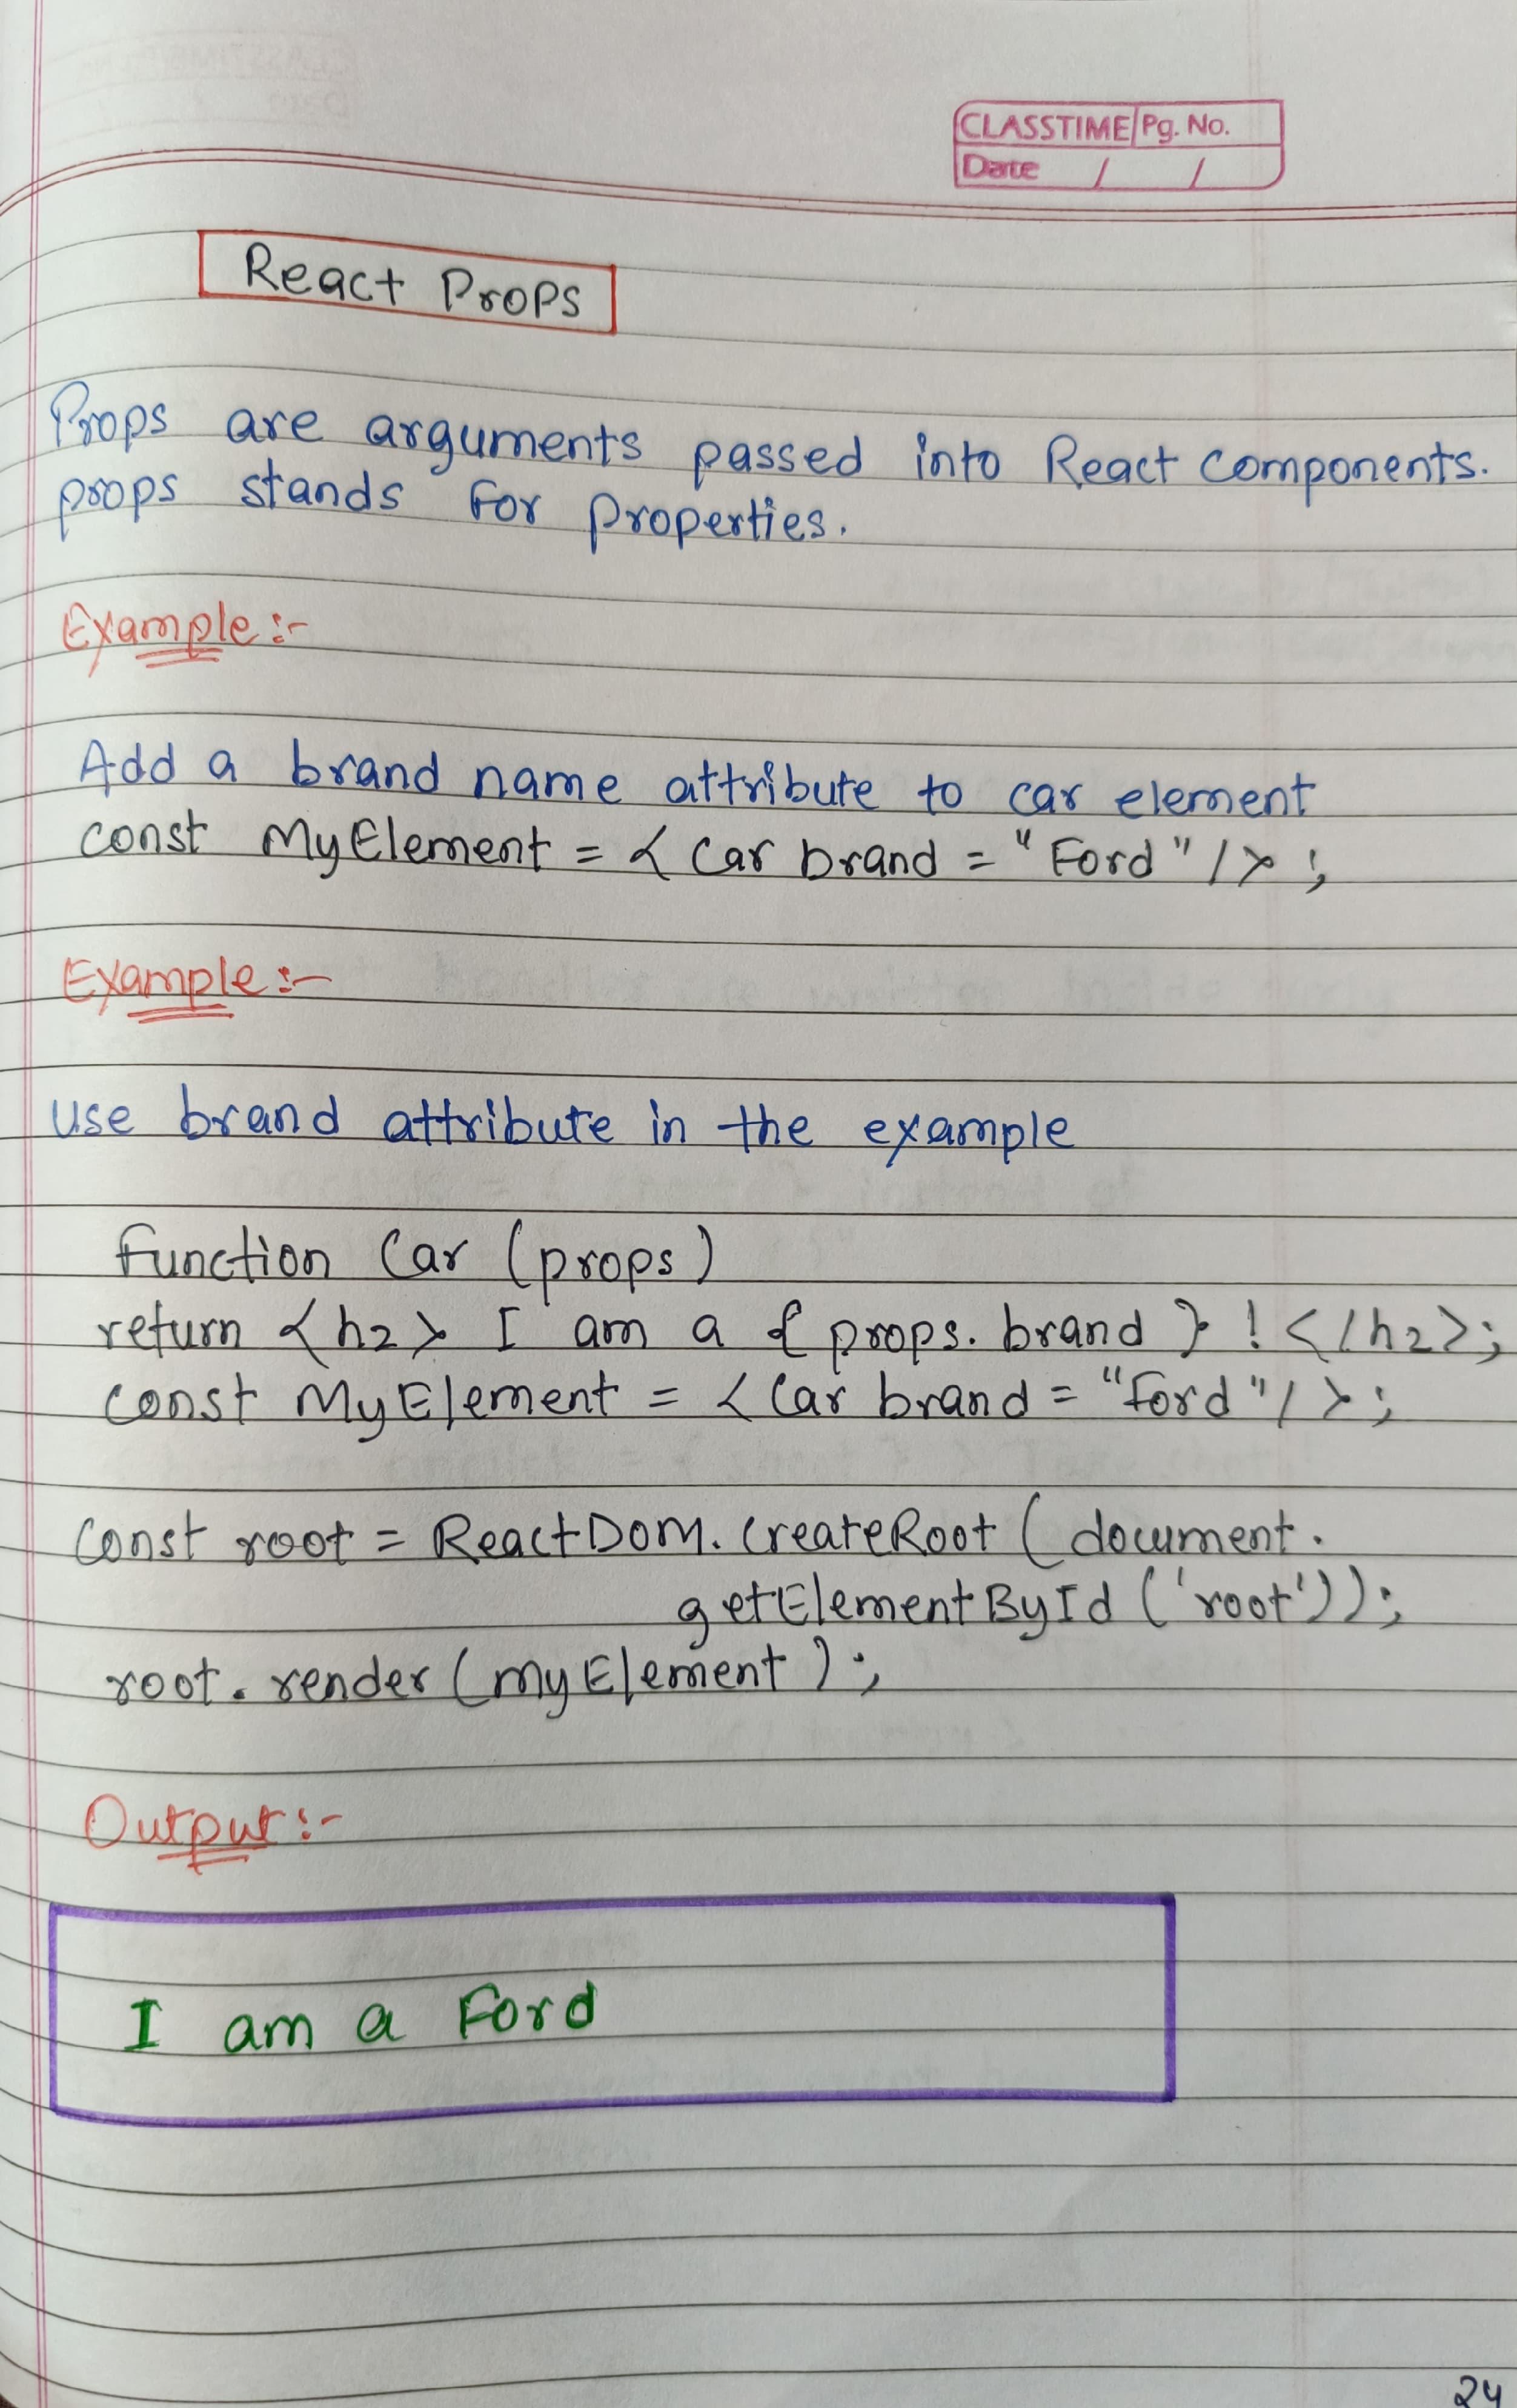 CLASSTIME Pg. No.
Date / /
React Props
Props are arguments passed into React Components.
props stands for properties.
Example:-
Add a brand name attribute to car element
const MyElement = <Car brand = "Ford"/>;
Example:-
use brand attribute in the example
function Car (props)
return <h2> I am a { props.brand } ! </h2>;
const MyElement = <Car brand = "Ford"/>;
const root = ReactDOM.createRoot (document.
getElementById ('root'));
root.render (myElement);
Output:-
I am a Ford
24